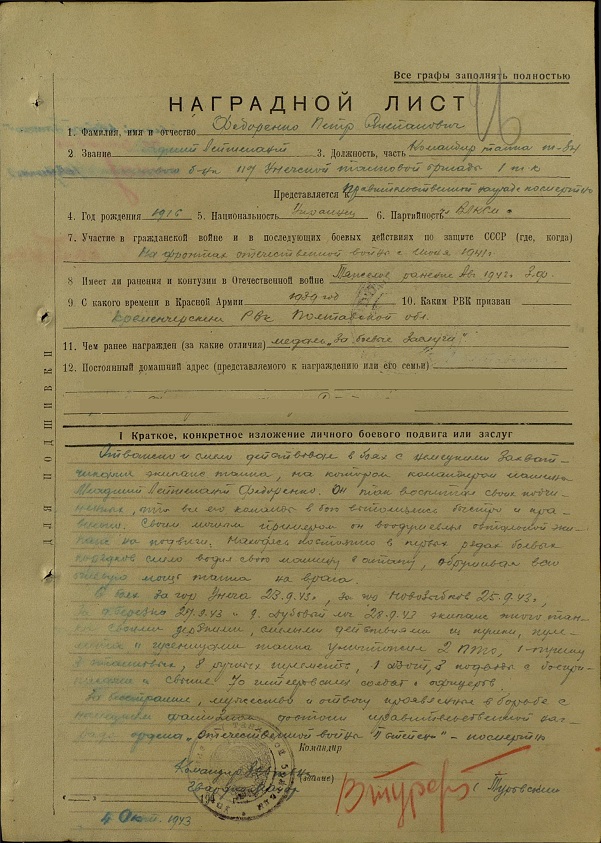 Все графы заполнять полностью
НАГРАДНОЙ ЛИСТ
1. Фамилия, имя и отчество Федоренко Петр
2. Звание Младший Лейтенант 3. Должность, часть Командир танка
117 Унечской танковой бригады 1 т-к
Представляется к правительственной награде посмертно
4. Год рождения 1916 5. Национальность Украинец 6. Партийность ВЛКСМ
7. Участие в гражданской войне и в последующих боевых действиях по защите СССР (где, когда)
На фронтах отечественной войны с июня 1941 г.
8 Имеет ли ранения и контузии в Отечественной войне Тяжелое ранение 1942г.
9 С какого времени в Красной Армии 1939 год 10. Каким РВК призван
Кременчугским РВК Полтавской обл.
11. Чем ранее награжден (за какие отличия) медаль „За боевые заслуги"
12. Постоянный домашний адрес (представляемого к награждению или его семьи)
ДЛЯ ПОДШИВКИ
I Краткое, конкретное изложение личного боевого подвига или заслуг
Отважно и смело действовал в боях с немецкими захват-
чиками экипаж танка, на котором командиром машины
Младший Лейтенант Федоренко. Он так воспитал своих подчи-
ненных, что все его команды в бою выполнялись быстро и пра-
вильно. Своим личным примером он воодушевлял остальной эки-
паж на подвиги. Находясь постоянно в первых рядах боевых
порядков смело водил свою машину в атаку, обрушивая всю
мощь танка на врага.
В боях за гор Унеча 23.9.43г., за Новозыбков 25.9.43г.,
за деревню 27.9.43 и д. Дубовый лог 28.9.43 экипаж этого тан-
ка своими дерзкими, смелыми действиями из пушки, пуле-
метов и гусеницами танка уничтожил 2 ПТО, 1-пушку
8 ручных пулеметов, 1 ДЗОТ, 8 подвод с боепри-
пасами и свыше 70 гитлеровских солдат и офицеров.
За бесстрашие, мужество и отвагу проявленные в борьбе с
немецкими фашистами достоин правительственной наг-
рады ордена „Отечественной войны II степени" – посмертно
Командир
(звание)
Командир
Гвардии
Туровский
4 Окт. 1943